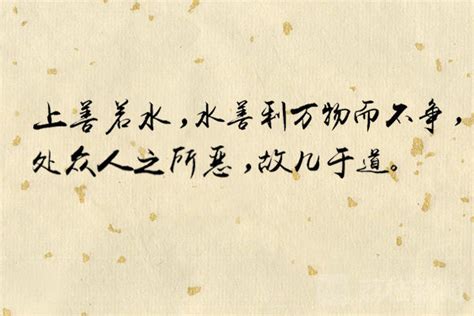 上善若水，水善利万物而不争，
处众人之所恶，故几于道。